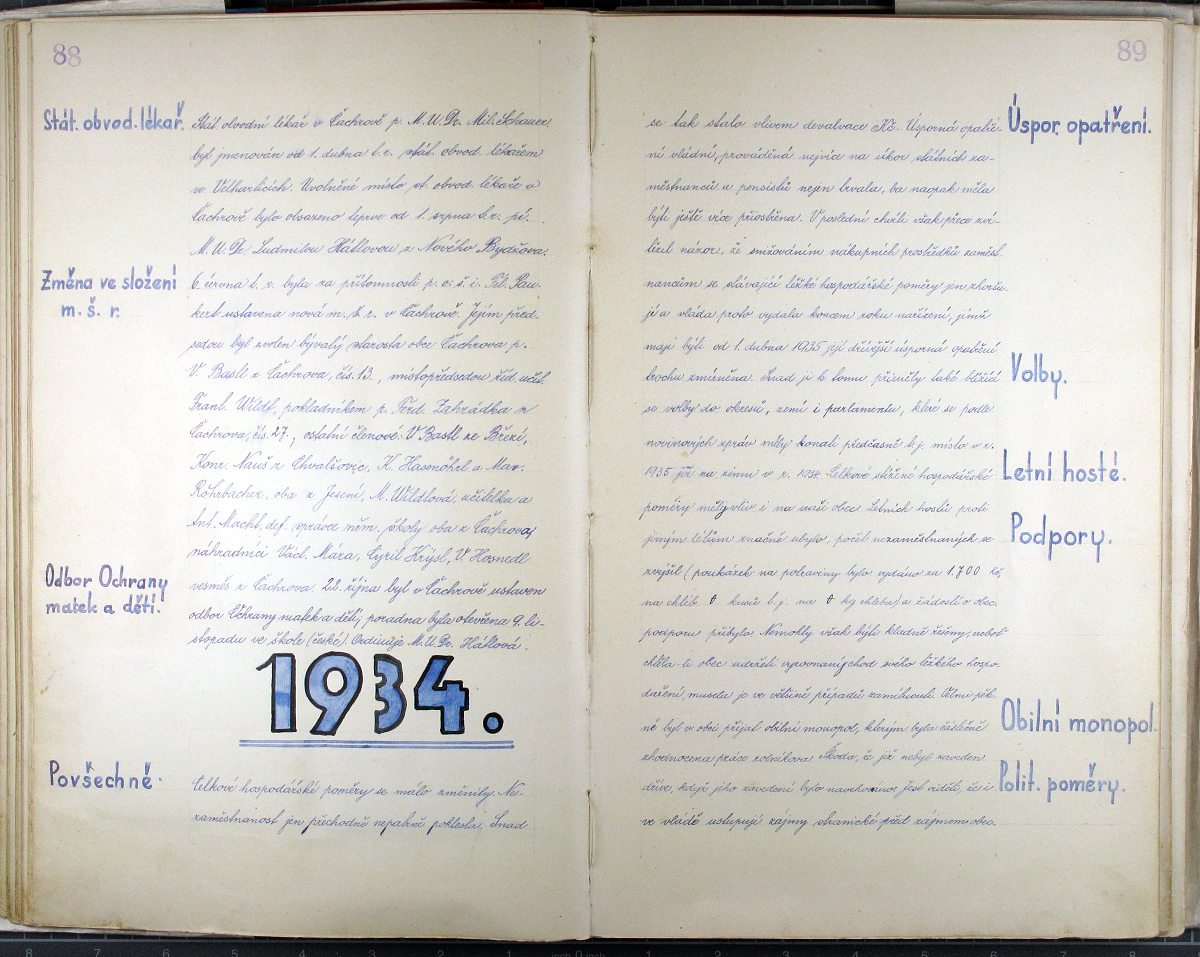 88
Stát. obvod. lékař.
Stát. obvodní lékař v Čachrově p. M. U. Dr. Mil. Schauer
byl jmenován od 1. dubna t. r. stát. obvod. lékařem
ve Velharticích. Uvolněné místo st. obvod. lékaře v
Čachrově bylo obsazeno teprve od 1. srpna t. r. pí.
M. U. Dr. Ludmilou Hátlovou z Nového Bydžova.
Změna ve složení
m. š. r.
6. června t. r. byla za přítomnosti p. o. š. i. Fel. Pau-
kert ustavena nová m. š. r. v Čachrově. Jejím před-
sedou byl zvolen bývalý starosta obce Čachrova p.
V. Bastl z Čachrova, čís. 13., místopředsedou říd. učit.
Frant. Wildt, pokladníkem p. Ferd. Zahrádka z
Čachrova, čís. 27., ostatní členové: V. Bastl ze Březí,
Konr. Nauš z Chvalšovic, K. Hasenöhrl a Mar.
Rohrbacher, oba z Jesení, M. Wildtová, učitelka a
Ant. Machl, def. správce něm. školy oba z Čachrova,
náhradníci Václ. Mára, Cyril Krýsl, V. Hosnedl
vesměs z Čachrova. 22. října byl v Čachrově ustaven
Odbor Ochrany
matek a dětí.
odbor Ochrany matek a dětí; poradna byla otevřena 9. li-
stopadu ve škole (české). Ordinuje M. U. Dr. Hátlová.
1934.
Povšechně.
Celkové hospodářské poměry se málo změnily. Ne-
zaměstnanost jen přechodně nepatrně poklesla. Snad
89
se tak stalo vlivem devalvace Kč. Úsporná opatře-
Úspor. opatření.
ní vládní, prováděná nejvíce na úkor státních za-
městnanců a pensistů nejen trvala, ba naopak měla
býti ještě více přiostřena. V poslední chvíli však přece zví-
tězil názor, že snižováním nákupních prostředků zaměst-
nancům se stávající těžké hospodářské poměry jen zhoršu-
jí a vláda proto vydala koncem roku nařízení, jímž
mají býti od 1. dubna 1935 její dřívější úsporná opatření
trochu zmírněna. Snad ji k tomu přiměly také blížící
Volby.
se volby do okresů, zemí i parlamentu, které se podle
novinových zpráv měly konati předčasně t. j. místo v r.
1935 již na zimu v r. 1934. Celkové stížené hospodářské
Letní hosté.
poměry měly vliv i na naši obec. Letních hostů proti
jiným létům značně ubylo, počet nezaměstnaných se
Podpory.
zvýšil (poukázek na potraviny bylo vydáno za 1.700 Kč,
na chléb kusů t. j. na kg chleba) a žádostí o obec.
podporu přibylo. Nemohly však býti kladně řešeny, neboť
chtěla-li obec udržeti vyrovnaný chod svého těžkého hospo-
daření, musela je ve většině případů zamítnouti. Velmi pěk-
ně byl v obci přijat obilní monopol, kterým byla částečně
Obilní monopol.
zhodnocena práce rolníkova. Škoda, že již nebyl zaveden
dříve, když jeho zavedení bylo navrhováno. Jest viděti, že i
Polit. poměry.
ve vládě ustupují zájmy stranické před zájmem obec-